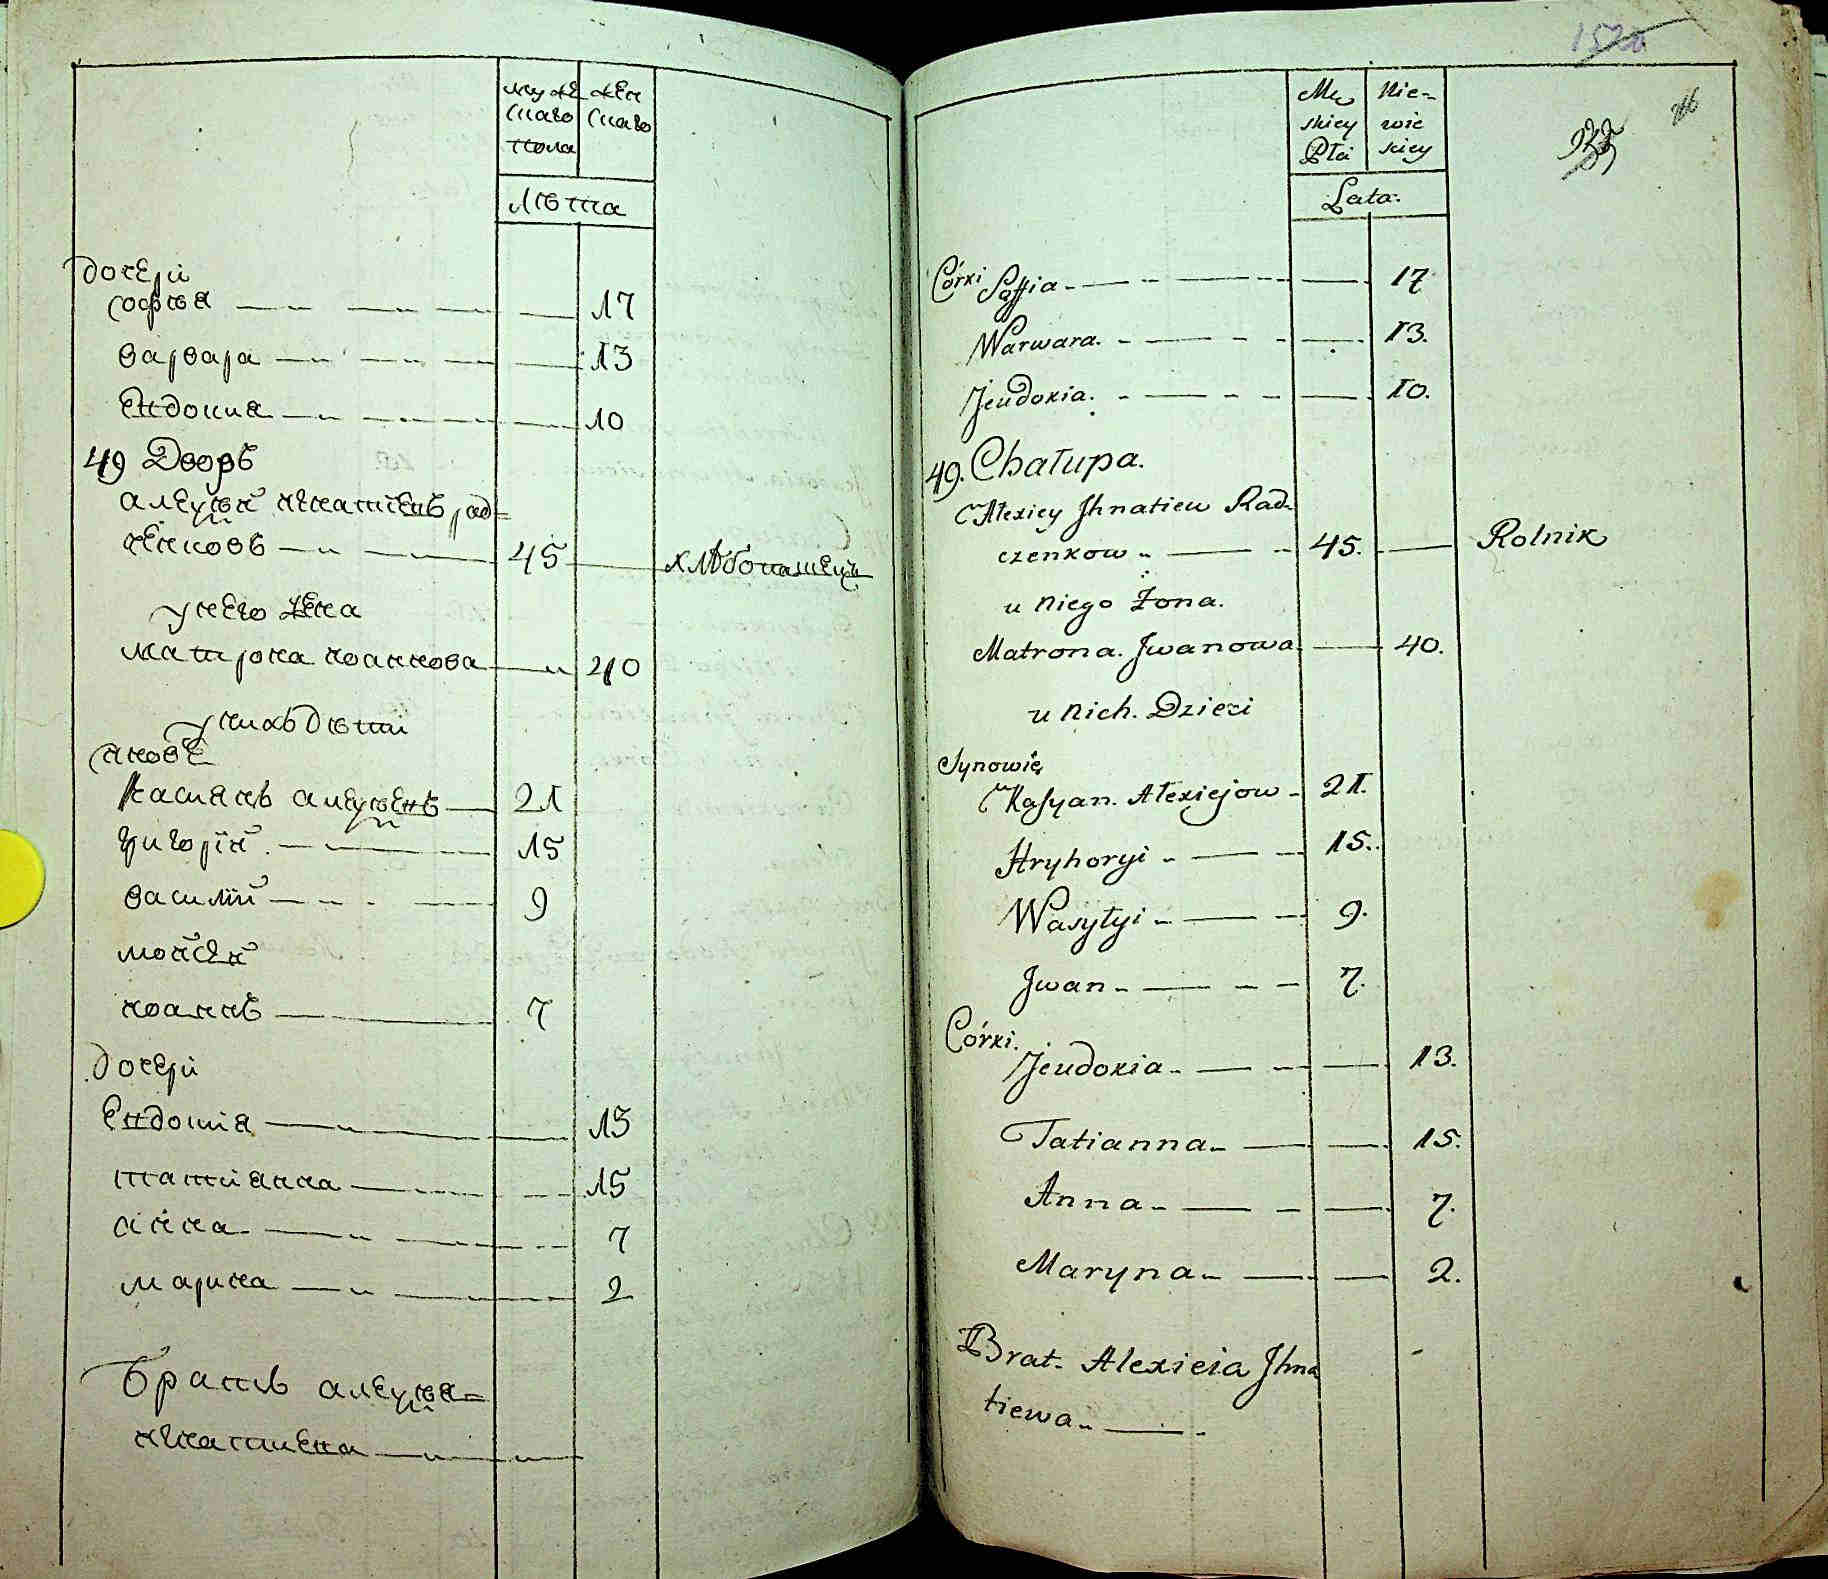 муже
скаго
пола
жен
скаго
Лѣта
дочери
софѣя 17
варвара 13
Евдокиа 10
49 Дворъ
алеѯѣй игнатиевъ рад=
ченковъ 45 хлѣбопашецъ
у него жена
матрона иоаннова 40
у нихъ дѣти
сиовѣ
Касиянъ алеѯѣевъ 21
григорїй 15
василїй 9
мойсей
иоаннъ 7
дочери
Евдокиа 13
татияана 15
анна 7
марина 2
Братъ алеѯѣя=
игнатиева
Mę
skiey
Płci
Nie-
wie
skiey
Lata.
Córki Soffia 17
Warwara. 13.
Jeudokia. 10.
49. Chałupa.
Alexiey Jhnatiew Rad-
czenkow 45. Rolnik
u niego Żona.
Matrona. Jwanowa 40.
u nich. Dzieci
Synowie
Kasyan. Alexiejow 21.
Hryhoryi 15.
Wasyłyi 9.
Jwan 7.
Córki.
Jeudokia 13.
Tatianna 15.
Anna 7.
Maryna 2.
Brat. Alexieia Jhna
tiewa